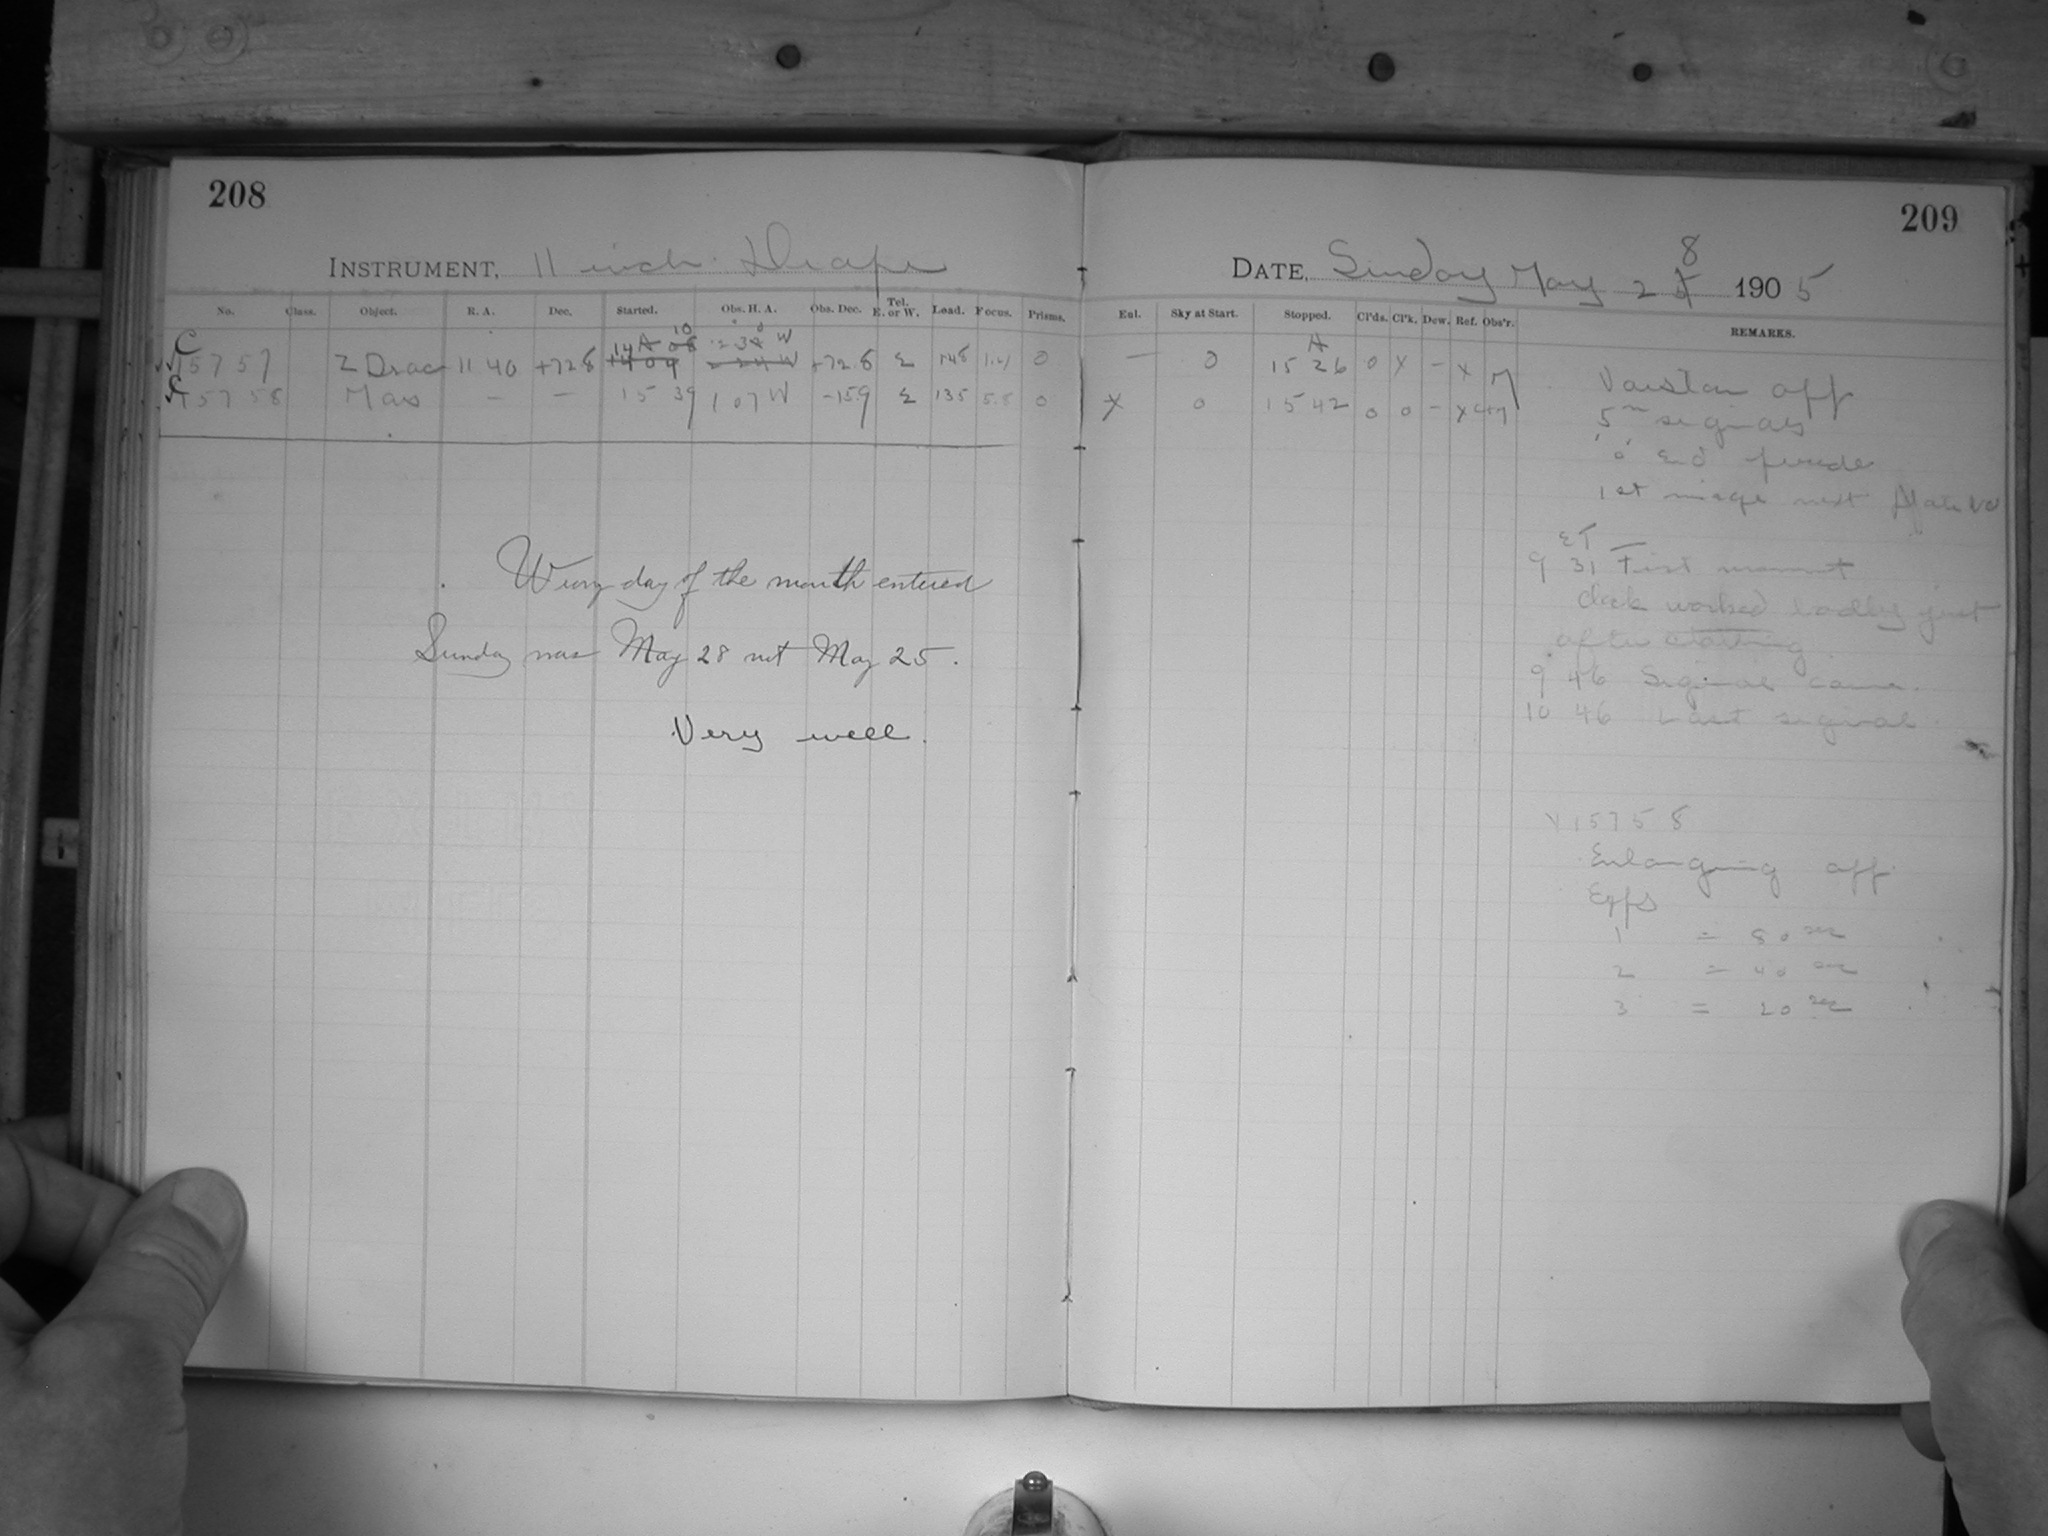 208
INSTRUMENT, 11 inch Draper
No. Class. Object. R. A. Dec. Started. Obs. H. A. Obs. Dec. Tel. E. or W. Load. Focus. Prisms.
C15757 Z Drac 11 40 +72.8 +72.8 E 148 0
C15758 Mars — — 15 39 1 07 W -15.9 E 135 5.8 0
Wrong day of the month entered
Sunday was May 28 not May 25.
Very well.
209
DATE, Sunday May 28 1905
Enl. Sky at Start. Stopped. Cl'ds. Cl'k. Dew. Ref. Obs'r. REMARKS.
— 0 15 26 0 X - X M
X 0 15 42 0 0 - X M
off
5m signals
end
1st image next
ET
9 31 First
clock worked badly just
after starting
9 46 Signal came.
10 46 Last signal
15758
Enlarging off
Exps
1 = 80 sec
2 = 40 sec
3 = 20 sec